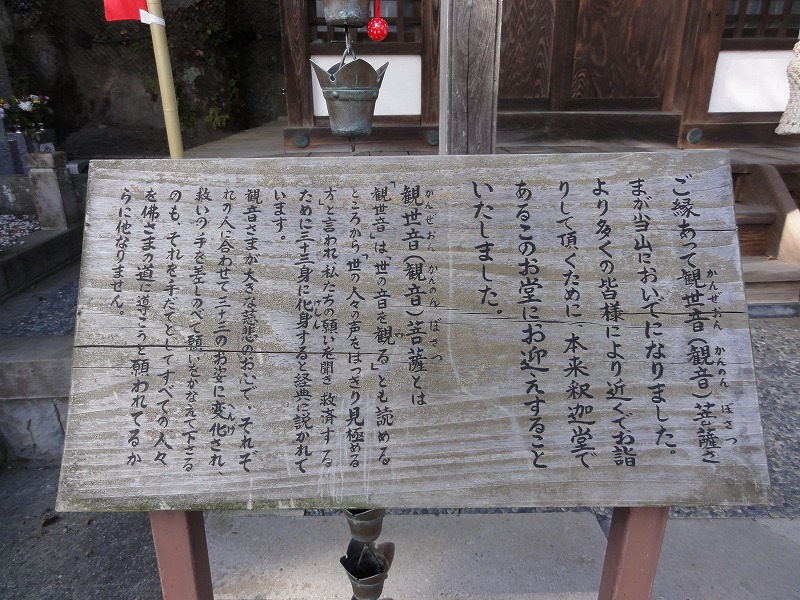 ご縁あって観世音(観音)菩薩さ
まが当山においでになりました。
より多くの皆様により近くでお詣
りして頂くために、本来釈迦堂で
あるこのお堂にお迎えすること
いたしました。
観世音(観音)菩薩とは
「観世音」は、「世の音を観る」とも読める
ところから「世の人々の声をはっきり見極める
方」と言われ、私たちの願いを聞き救済する
ために三十三身に化身すると経典に説かれて
います。
観音さまが大きな慈悲のお心で、それぞ
れの人に合わせて三十三のお姿に変化され、
救いの手を差しのべて願いをかなえて下さる
のも、それを手だてとしてすべての人々
を佛さまの道に導こうと願われてるか
らに他なりません。